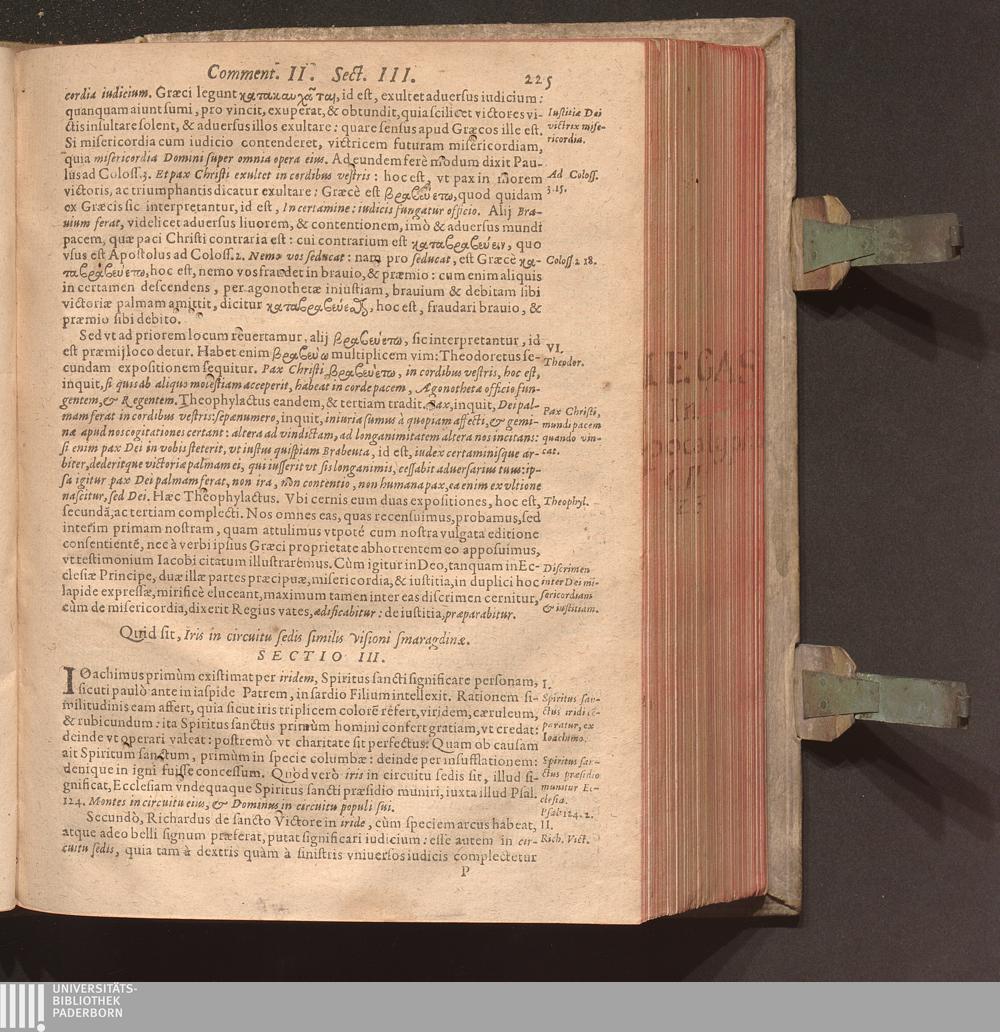 Comment. II. Sect. III. 225
cordia iudicium. Græci legunt κατακαυχᾶται, id est, exultet aduersus iudicium:
quanquam aiunt sumi, pro vincit, exuperat, & obtundit, quia scilicet victores vi-
ctis insultare solent, & aduersus illos exultare: quare sensus apud Græcos ille est.
Si misericordia cum iudicio contenderet, victricem futuram misericordiam,
quia misericordia Domini super omnia opera eius. Ad eundem ferè modum dixit Pau-
lus ad Coloss.3. Et pax Christi exultet in cordibus vestris: hoc est, vt pax in morem
victoris, ac triumphantis dicatur exultare: Græcè est βραβευέτω, quod quidam
ex Græcis sic interpretantur, id est, In certamine: iudicis fungatur officio. Alij Bra-
uium ferat, videlicet aduersus liuorem, & contentionem, imò & aduersus mundi
pacem, quæ paci Christi contraria est: cui contrarium est καταβραβεύειν, quo
vsus est Apostolus ad Coloss.2. Nemo vos seducat: nam pro seducat, est Græcè κα-
ταβραβευέτω, hoc est, nemo vos fraudet in brauio, & præmio: cum enim aliquis
in certamen descendens, per agonothetæ iniustiam, brauium & debitam sibi
victoriæ palmam amittit, dicitur καταβραβεύεσθαι, hoc est, fraudari brauio, &
præmio sibi debito.
Sed vt ad priorem locum reuertamur, alij βραβευέτω, sic interpretantur, id
est præmij loco detur. Habet enim βραβεύω multiplicem vim: Theodoretus se-
cundam expositionem sequitur. Pax Christi βραβευέτω, in cordibus vestris, hoc est,
inquit, si quis ab aliquo molestiam acceperit, habeat in corde pacem, Agonothetæ officio fun-
gentem, & Regentem. Theophylactus eandem, & tertiam tradit. Pax, inquit, Dei pal-
mam ferat in cordibus vestris: sæpenumero, inquit, iniuria sumus à quopiam affecti, & gemi-
næ apud nos cogitationes certant: altera ad vindictam, ad longanimitatem altera nos incitans:
si enim pax Dei in vobis steterit, vt iustus quispiam Brabeuta, id est, iudex certaminisque ar-
biter, dederitque victoriæ palmam ei, qui iusserit vt sis longanimis, cessabit aduersarius tuus: ip-
sa igitur pax Dei palmam ferat, non ira, non contentio, non humana pax, ea enim ex vltione
nascitur, sed Dei. Hæc Theophylactus. Vbi cernis eum duas expositiones, hoc est,
secundã, ac tertiam complecti. Nos omnes eas, quas recensuimus, probamus, sed
interim primam nostram, quam attulimus vtpotè cum nostra vulgata editione
consentientē, nec à verbi ipsius Græci proprietate abhorrentem eo apposuimus,
vt testimonium Iacobi citatum illustraremus. Cùm igitur in Deo, tanquam in Ec-
clesiæ Principe, duæ illæ partes præcipuæ, misericordia, & iustitia, in duplici hoc
lapide expressæ, mirificè eluceant, maximum tamen inter eas discrimen cernitur,
cùm de misericordia, dixerit Regius vates, ædificabitur: de iustitia, præparabitur.
Quid sit, Iris in circuitu sedis similis visioni smaragdinæ.
SECTIO III.
IOachimus primùm existimat per iridem, Spiritus sancti significare personam,
sicuti paulò ante in iaspide Patrem, in sardio Filium intellexit. Rationem si-
militudinis eam affert, quia sicut iris triplicem colorē refert, viridem, cæruleum,
& rubicundum: ita Spiritus sanctus primùm homini confert gratiam, vt credat:
deinde vt operari valeat: postremò vt charitate sit perfectus. Quam ob causam
ait Spiritum sanctum, primùm in specie columbæ: deinde per insufflationem:
denique in igni fuisse concessum. Quòd verò iris in circuitu sedis sit, illud si-
gnificat, Ecclesiam vndequaque Spiritus sancti præsidio muniri, iuxta illud Psal.
124. Montes in circuitu eius, & Dominus in circuitu populi sui.
Secundò, Richardus de sancto Victore in iride, cùm speciem arcus habeat,
atque adeo belli signum præferat, putat significari iudicium: esse autem in cir-
cuitu sedis, quia tam à dextris quàm à sinistris vniuersos iudicis complectetur
P
Iustitia Dei
victrix mise-
ricordia.
Ad Coloss.
3.15.
Coloss.2 18.
VI.
Theodor.
Pax Christi,
mundi pacem
quando vin-
cat.
Theophyl.
Discrimen
inter Dei mi-
sericordiam
& iustitiam.
I.
Spiritus san-
ctus iridi cō-
paratur, ex
Ioachimo.
Spiritus san-
ctus præsidio
munitur Ec-
clesia.
Psal. 124.2.
II.
Rich. Vict.
LEGAS
In
UNIVERSITÄTS-
BIBLIOTHEK
PADERBORN